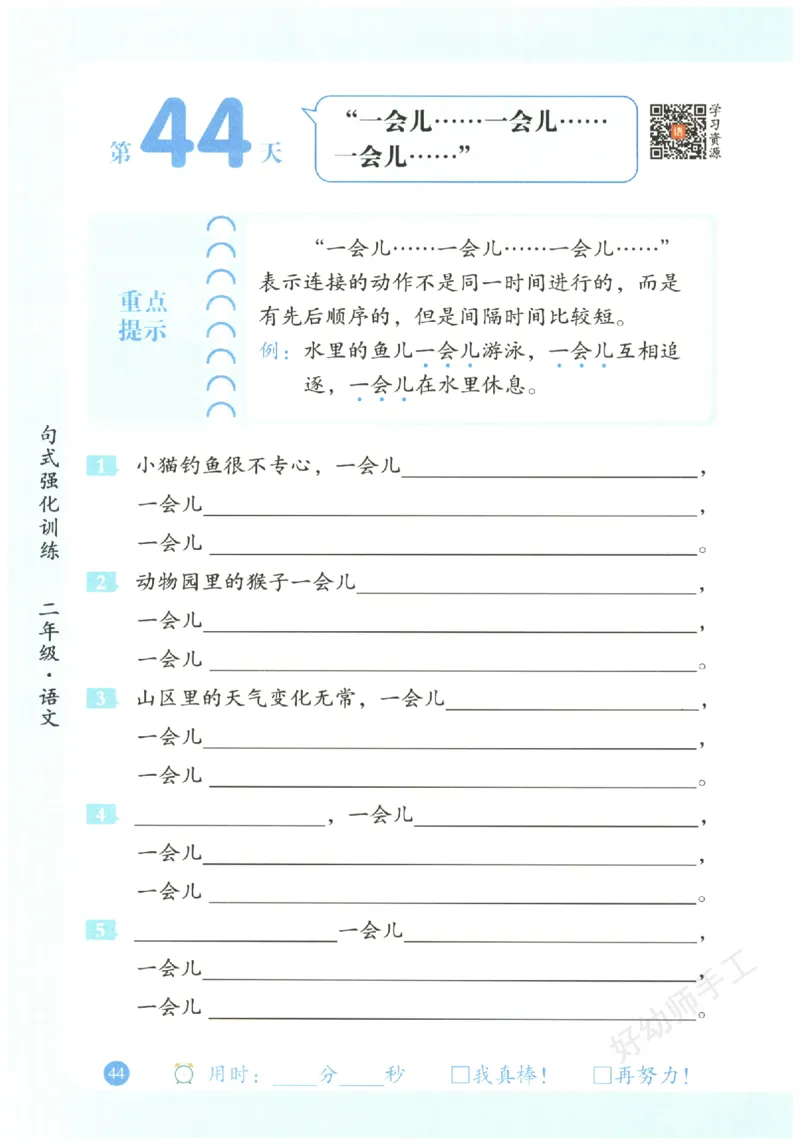 第44天
“一会儿……一会儿……
一会儿……”
学习资源
语
重点
提示
“一会儿……一会儿……一会儿……”
表示连接的动作不是同一时间进行的，而是
有先后顺序的，但是间隔时间比较短。
例：水里的鱼儿一会儿游泳，一会儿互相追
逐，一会儿在水里休息。
句式强化训练 二年级·语文
1 小猫钓鱼很不专心，一会儿____，
一会儿____，
一会儿____。
2 动物园里的猴子一会儿____，
一会儿____，
一会儿____。
3 山区里的天气变化无常，一会儿____，
一会儿____，
一会儿____。
4 ____，一会儿____，
一会儿____，
一会儿____。
5 ____一会儿____，
一会儿____，
一会儿____。
好幼师手工
44 用时：____分____秒 □我真棒！ □再努力！